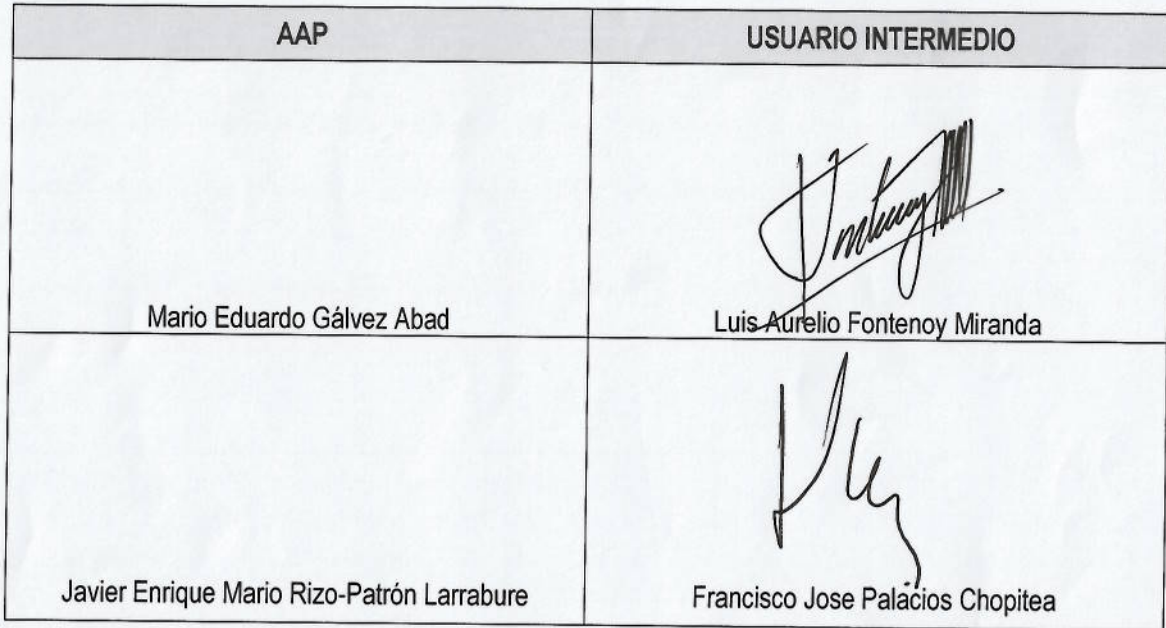 AAP
USUARIO INTERMEDIO
Mario Eduardo Gálvez Abad
Luis Aurelio Fontenoy Miranda
Javier Enrique Mario Rizo-Patrón Larrabure
Francisco Jose Palacios Chopitea